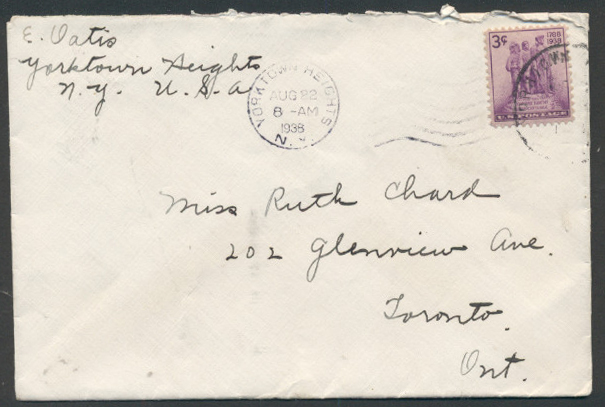 E. Vatis
Yorktown Heights
N.Y. U.S.A
YORKTOWN HEIGHTS
AUG 22
8 -AM
1938
N.Y.
3¢
1788
1938
U.S. POSTAGE
Miss Ruth Chard
202 Glenview Ave.
Toronto.
Ont.